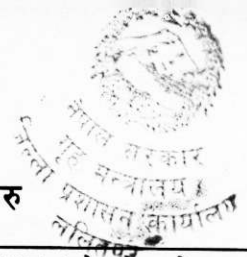 नेपाल सरकार
गृह मन्त्रालय
जिल्ला प्रशासन कार्यालय
ललितपुर
रु